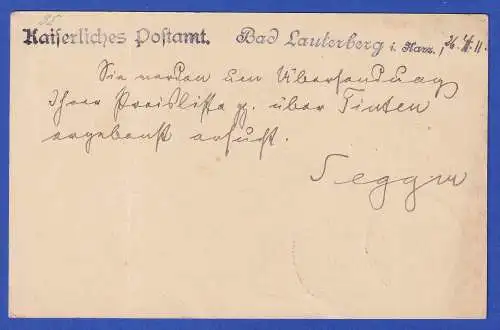 35
Kaiserliches Postamt. Bad Lauterberg i. Harz, 26. 4. 11.
Sie werden um Übersendung
Ihrer Preisliste g. über Tinten
ergebenst ersucht.
Segger